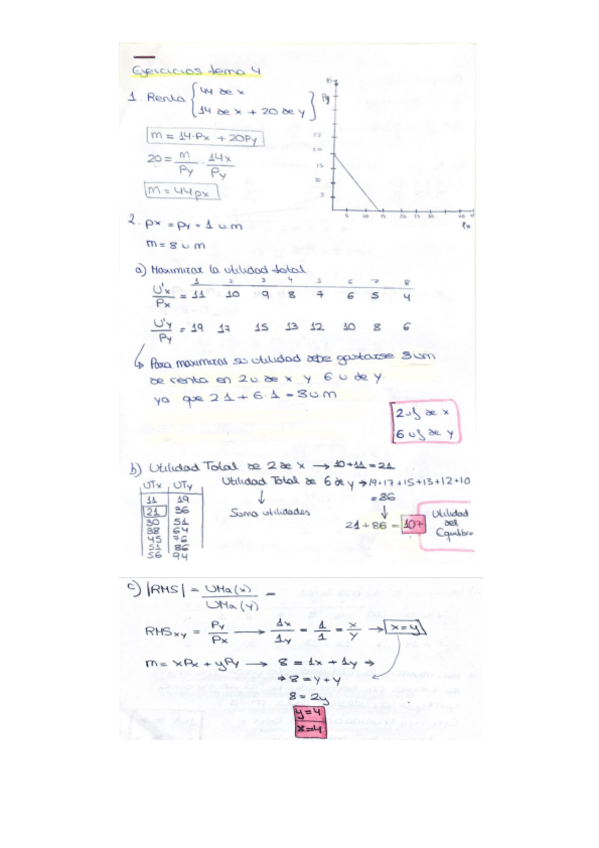 Ejercicios tema 4
1. Renta { 44 de x
14 de x + 20 de y }
m = 14·Px + 20Py
20 = m/Py · 14x/Py
m = 44px
Py
5 15 20 25 30 40
Px
2. px = py = 1 um
m = 8 um
a) Maximizar la utilidad total
1 2 3 4 5 6 7 8
U'x/Px = 11 10 9 8 7 6 5 4
U'y/Py = 19 17 15 13 12 10 8 6
↳ Para maximizar su utilidad debe gastarse 8 um
de renta en 2u de x y 6 u de y.
ya que 2·1 + 6·1 = 8um
2 uf de x
6 uf de y
b) Utilidad Total de 2 de x → 10+11 = 21
UTx UTy
Utilidad Total de 6 de y → 19+17+15+13+12+10
= 86
↓
Suma utilidades
11 19
21 36
30 51
38 64
45 76
51 86
56 94
21 + 86 = 107
Utilidad del Equilibrio
c) |RMS| = UMa(x)/UMa(y) =
RMSxy = Py/Px → 1x/1y = 1/1 = x/y → x=y
m = xPx + yPy → 8 = 1x + 1y →
→ 8 = y + y
8 = 2y
y=4
x=4